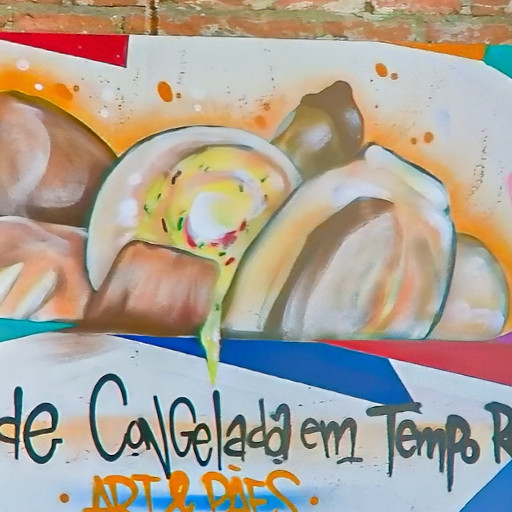 de Congelada em Tempo R
ART & PÃES